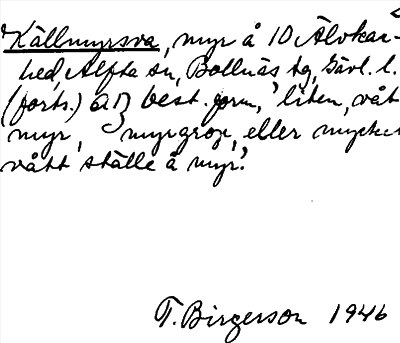 Källmyrsva, myr å 10 Älvkar-
hed, Alfta sn, Bollnäs tg, Gävl. l.
(forts.) best. form, 'liten, våt
myr, myrgrop, eller mycket
vått ställe å myr'.
T. Birgerson 1946